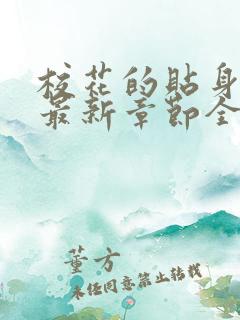 校花的贴身
最新章节全
董方
未经同意禁止转载